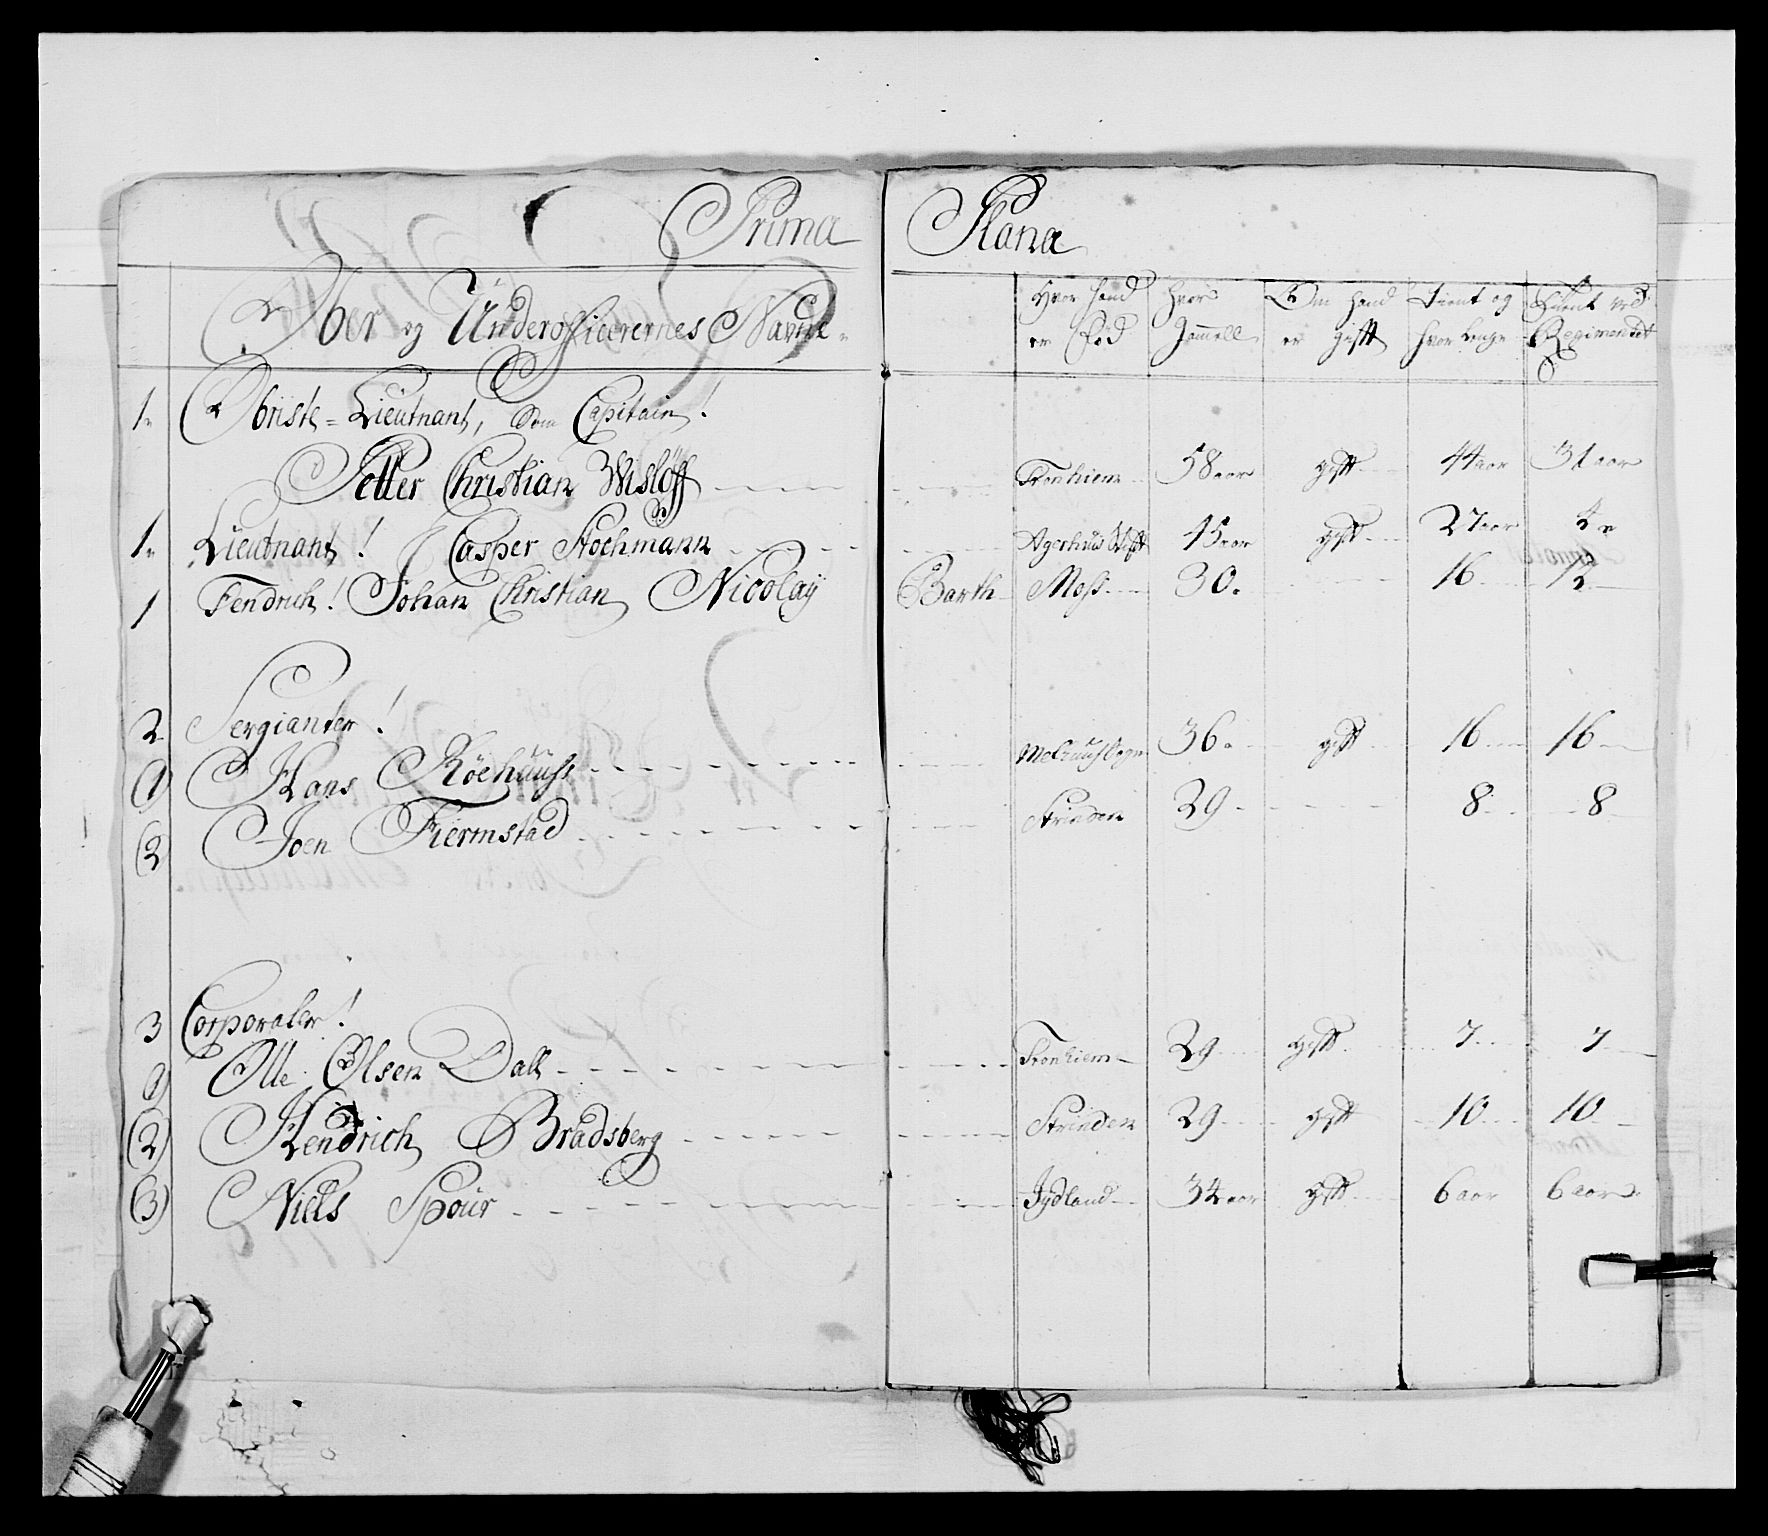 Prima Plana
Ober og Underofficerernes Navne
Hvor hand er Fød
Hvor Gamell
Om hand er gift
Tient og hvor lenge
Tient ved Regimentet
1. Obriste-Lieutnant, som Capitain!
Petter Christian Wisløff Tronhiem 58 aar gift 44 aar 31 aar
1. Lieutnant! Casper Stochmann Agerhuus Stift 45 aar gift 27 aar
1 Fendrich! Johan Christian Nicolaÿ Barth Moss 30. 16 12
2 Sergianter!
(1) Hans Röehuuss Melhuus Sogn 36. gift 16 16
(2) Joen Fiermstad Strinden 29 8 8
3 Corporaler!
(1) Olle Olsen Dall Tronhiem 29 gift 7 7
(2) Hendrich Bradsberg Strinden 29 gift 10 10
(3) Niels Spour Jydland 34 aar gift 6 aar 6 aar